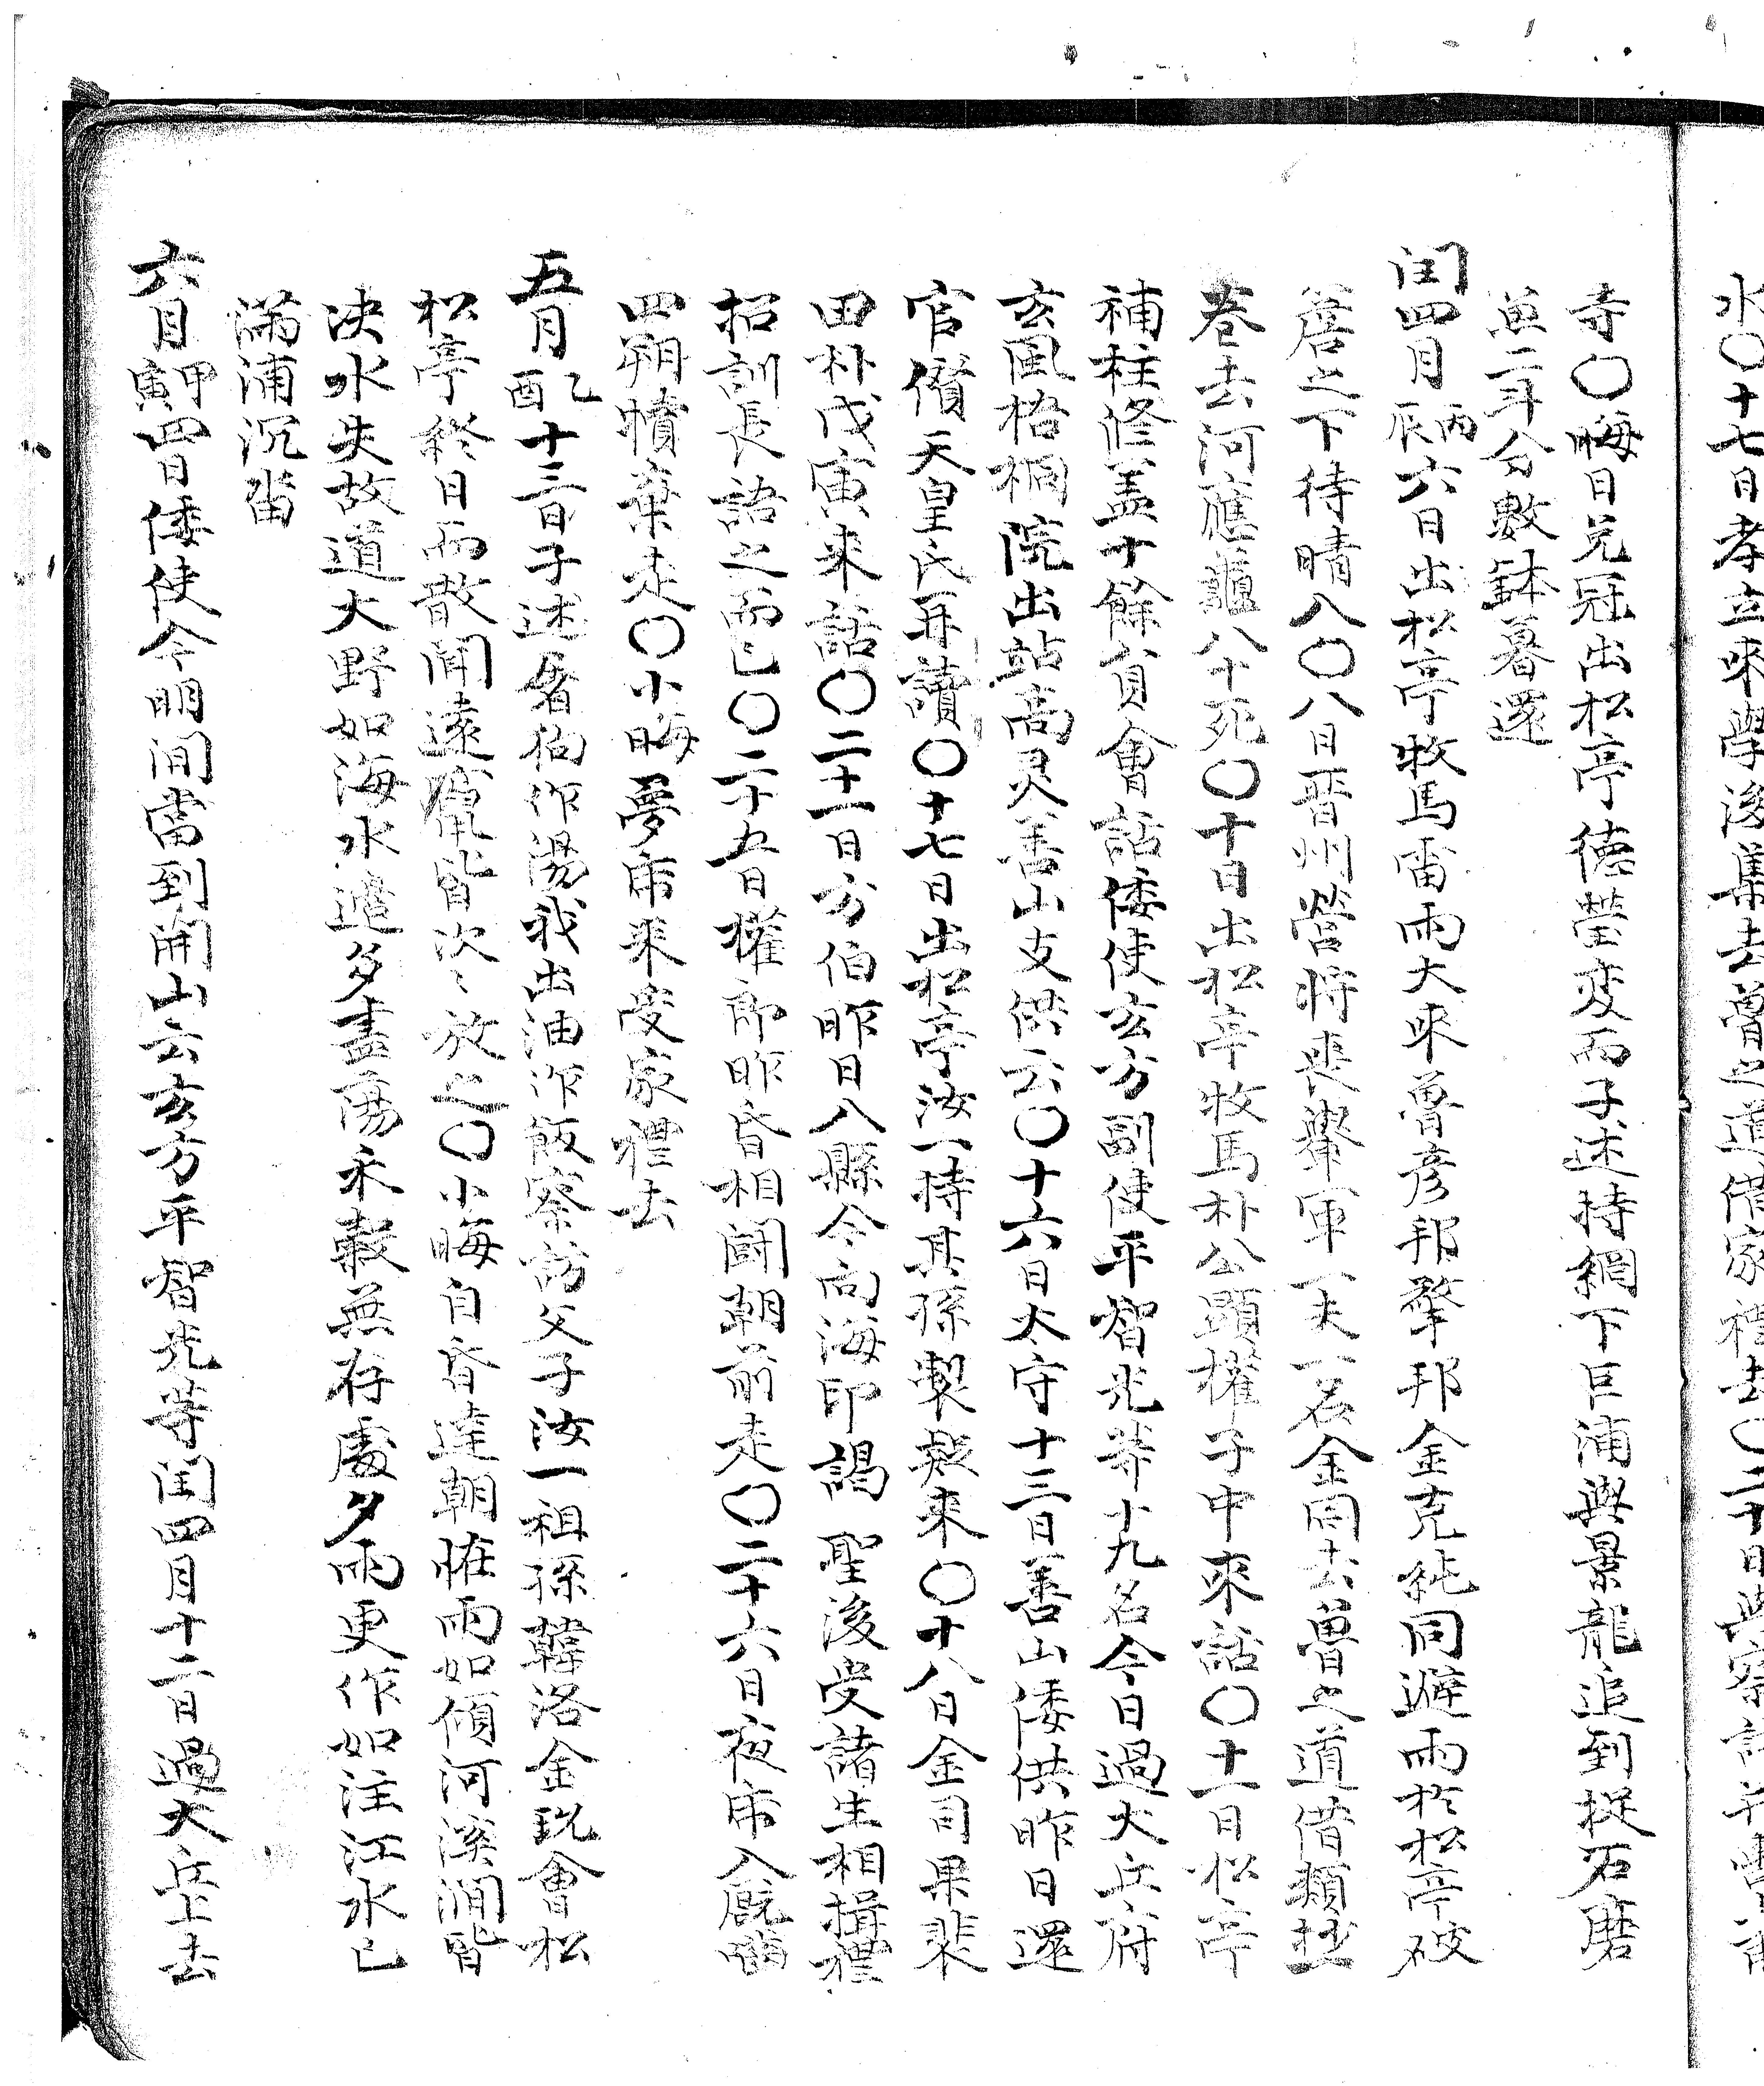 水〇十七日孝立來學後集去魯之道借家禮去〇二十日與察訪
寺〇晦日兌冠出松亭德瑩変而子述持網下巨浦與景龍追到捉石磨
魚二斗分數缽暮還
閏四月丙辰六日出松亭牧馬雷雨大來魯彦邦擎邦金克純同避雨於松亭破
蓎之下待晴八〇八日晋州營將喪轝軍一夫一名金同去魯之道借類抄
卷去河應龍八十死〇十日出松亭牧馬朴公顯權子中來話〇十一日松亭
補柱修盖十餘員會話倭使玄方副使平智光等十九名今日過大丘府
玄風梧桐院出站高灵善山支供云〇十六日太守十三日善山倭供昨日還
官償天皇氏再讀〇十七日出松亭汝一持其孫製疑來〇十八日金司果裴
田朴戊寅來話〇二十一日方伯昨日入縣今向海印謁 聖後受諸生相揖禮
招訓長語之而已〇二十五日權郎昨昏相鬪朝前走〇二十六日夜席入廐噛
四朔犢棄走〇小晦夢席來受家禮去
五月乙酉十三日子述屠狗作湯我出油作飯察訪父子汝一祖孫韓洛金銳會松
松亭終日而散聞遠竄皆次次放之〇小晦自昏達朝恠雨如傾河溪澗皆
決水失故道大野如海水邊多盡傷禾穀無存處夕雨更作如注江水已
滿浦沉畓
六月甲寅四日倭使今明間當到開山云玄方平智光等閏四月十二日過大丘上去